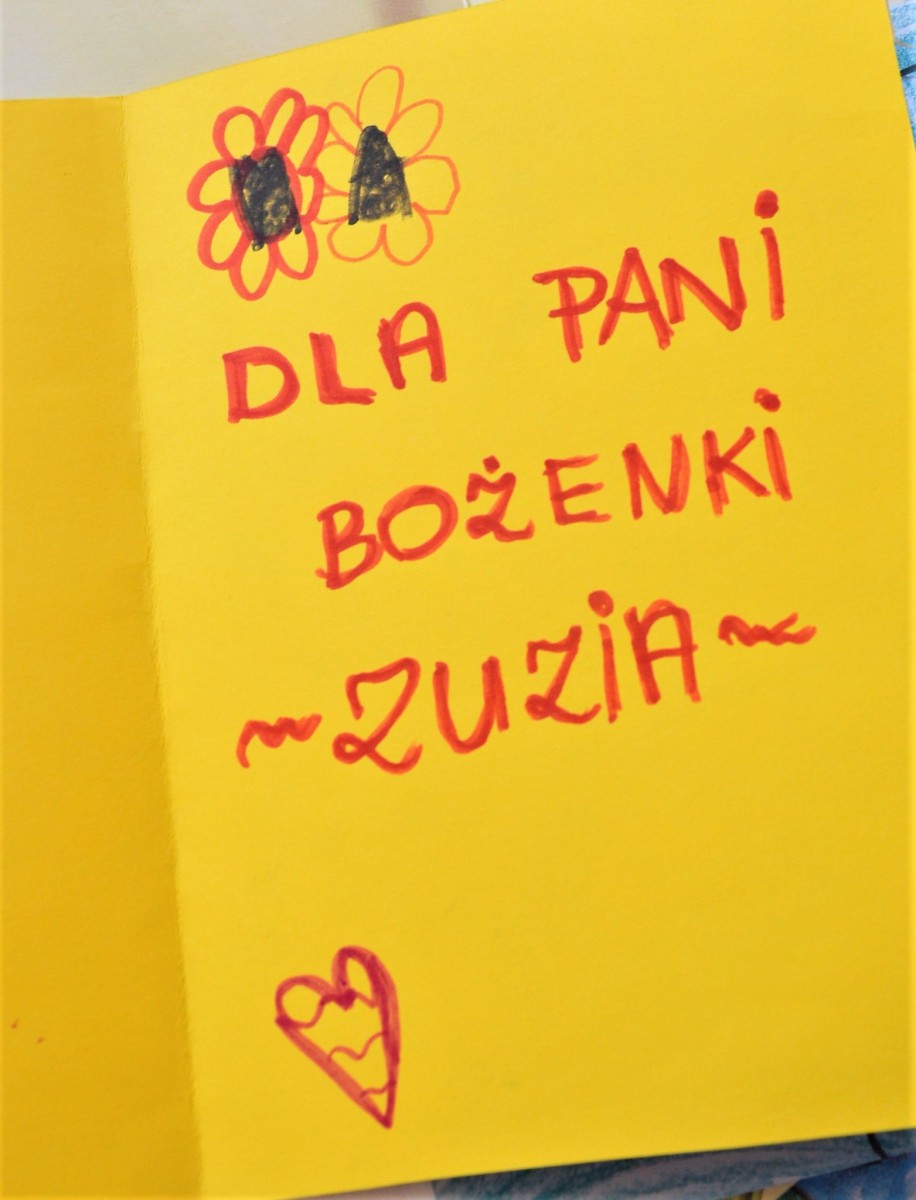 DLA PANi
BOŻENKi
~ZUZiA~